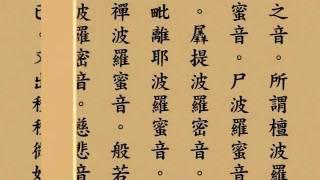 之音。所謂檀波羅
蜜音。尸波羅蜜音
。羼提波羅密音。
毗離耶波羅蜜音。
禪波羅蜜音。般若
波羅密音。慈悲音
已。又出種種微妙